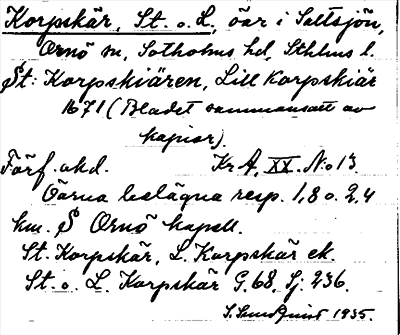 Korpskär, St. o. L., öar i Saltsjön,
Ornö sn, Sotholms hd, Sthlms l.
St: Korpskiären, Lill Korpskiär
1671 (Bladet sammansatt av
kopior).
Förf. okd. Kr A, XX. No 13.
Öarna belägna resp. 1,8 o. 2,4
km. S Ornö kapell.
St. Korpskär, L. Korpskär ek.
St. o. L. Korpskär G. 68, Sj: 236.
S. Sundquist 1935.